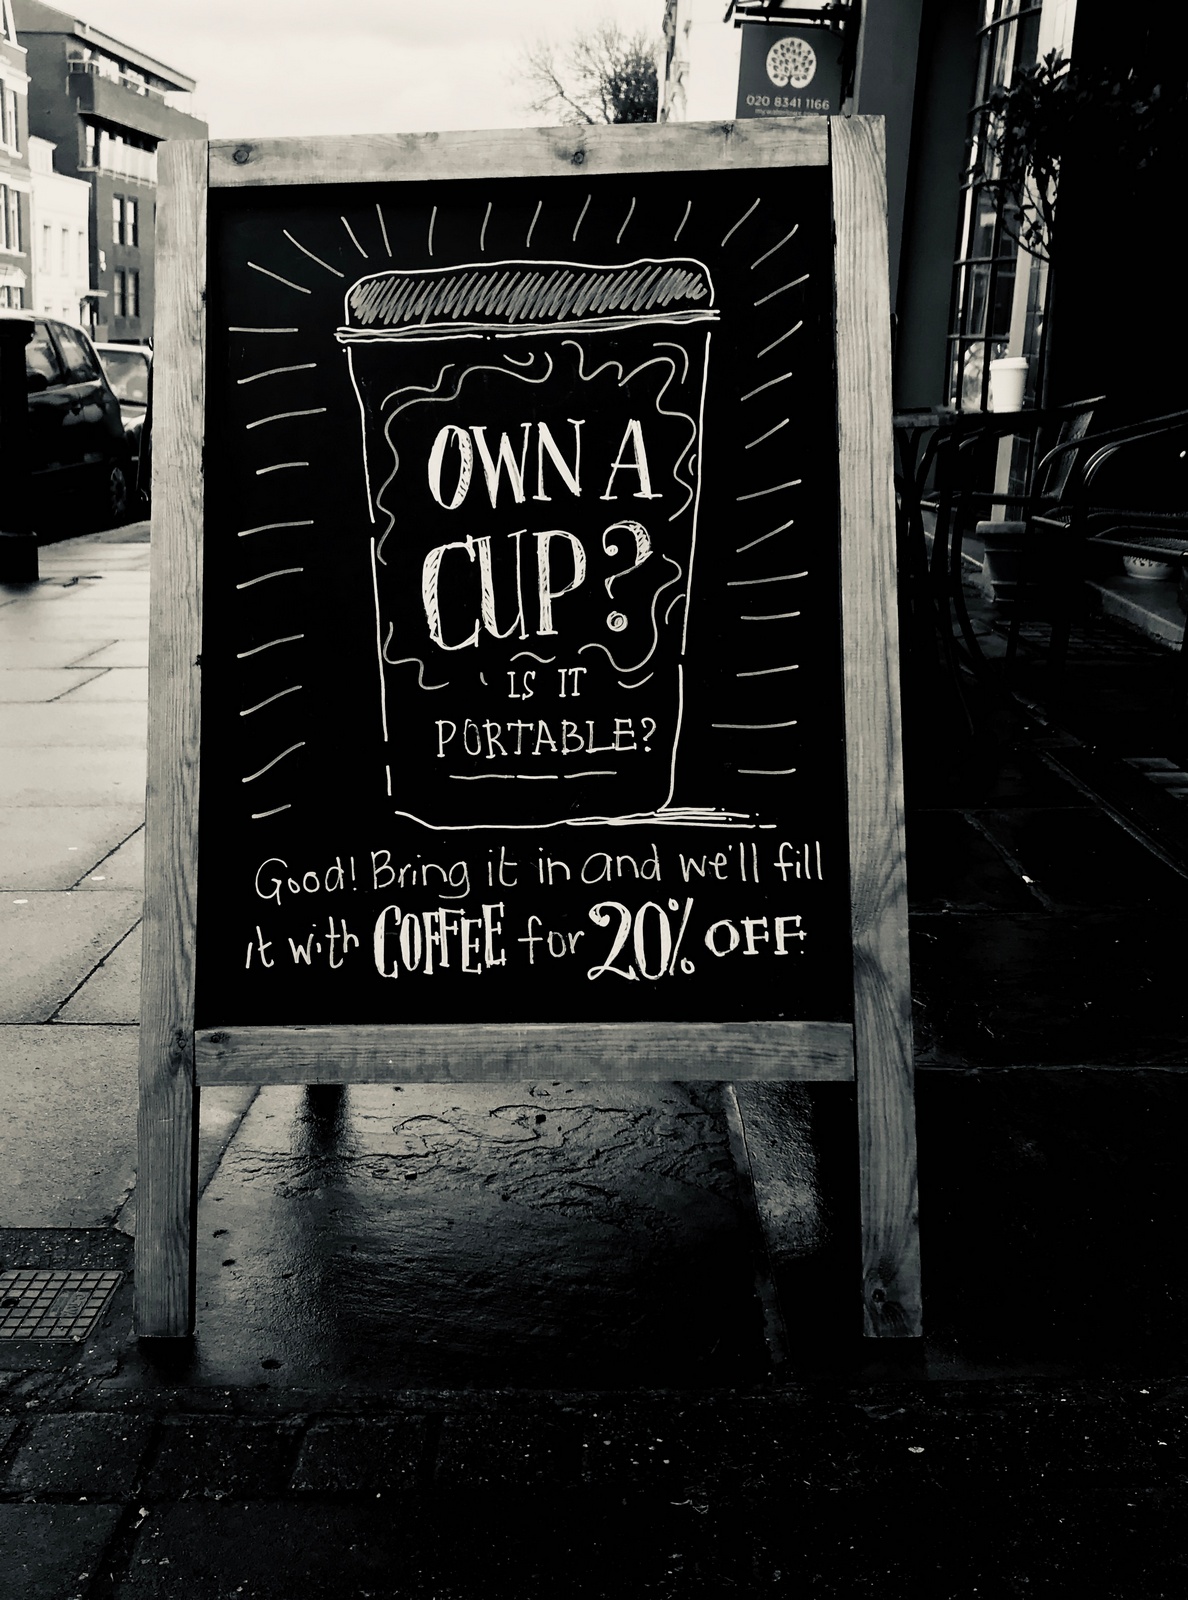 020 8341 1166
OWN A
CUP?
IS IT
PORTABLE?
Good! Bring it in and we'll fill
it with COFFEE for 20% OFF.